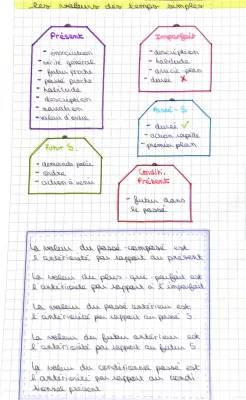 les valeurs des temps simples
Présent
- énonciation
- vérité générale
- futur proche
- passé proche
- habitude
- description
- narration
- valeur d'ordre
Imparfait
- description
- habitude
- arrière-plan
- durée X
Passé - S.
- durée ✓
- action rapide
- premier plan
Futur S.
- demande polie
- ordre
- action à venir
Condit. Présent
- futur dans
le passé
La valeur du passé-composé est
l'antériorité par rapport au présent
La valeur du plus-que-parfait est
l'antériorité par rapport à l'imparfait
La valeur du passé antérieur est
l'antériorité par rapport au passé S.
La valeur du futur antérieur est
l'antériorité par rapport au futur S.
La valeur du conditionnel passé est
l'antériorité par rapport au condi
tionnel présent